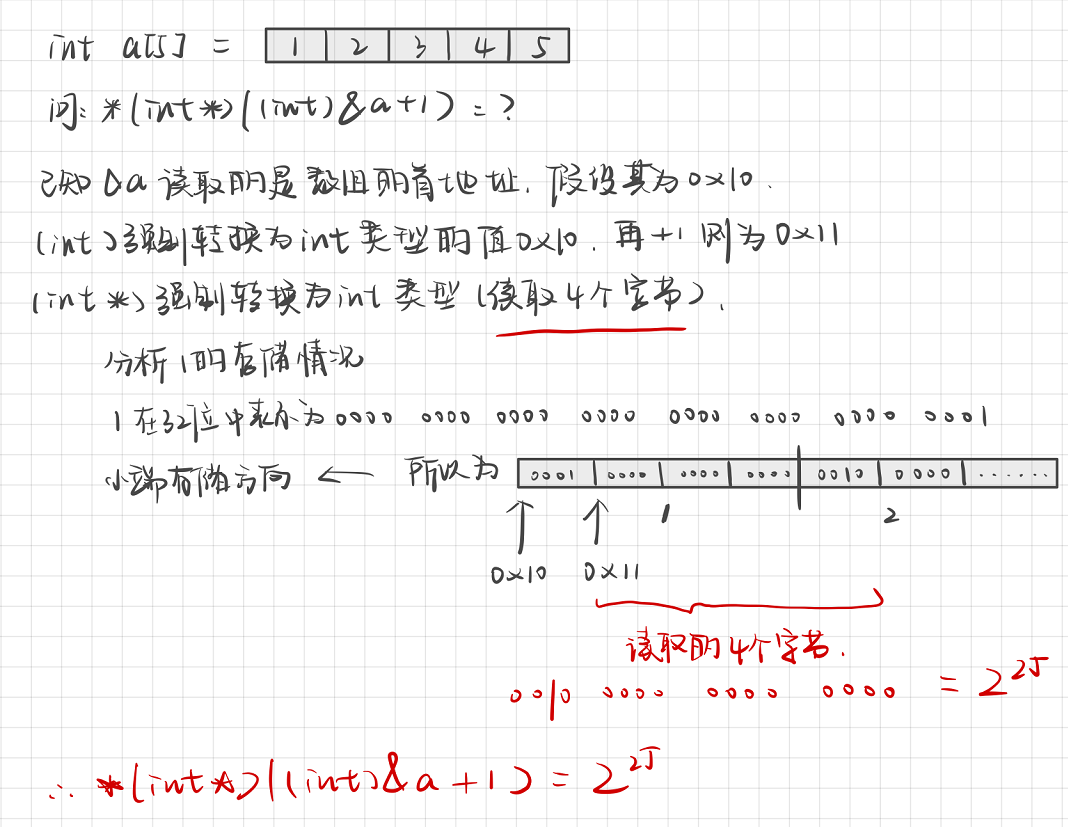 int a[5] = 1 2 3 4 5
问: *(int*)((int)&a+1) = ?
已知 &a 读取的是数组的首地址, 假设其为0x10.
(int)强制转换为int类型的值0x10, 再+1则为0x11
(int*)强制转换为int类型(读取4个字节).
分析1的存储情况
1在32位中表示为0000 0000 0000 0000 0000 0000 0000 0001
小端存储方向 ← 所以为 0001 0000 0000 0000 0010 0000 ......
1 2
0x10 0x11
读取的4个字节.
0010 0000 0000 0000 = 2^25
∴ *(int*)((int)&a+1) = 2^25